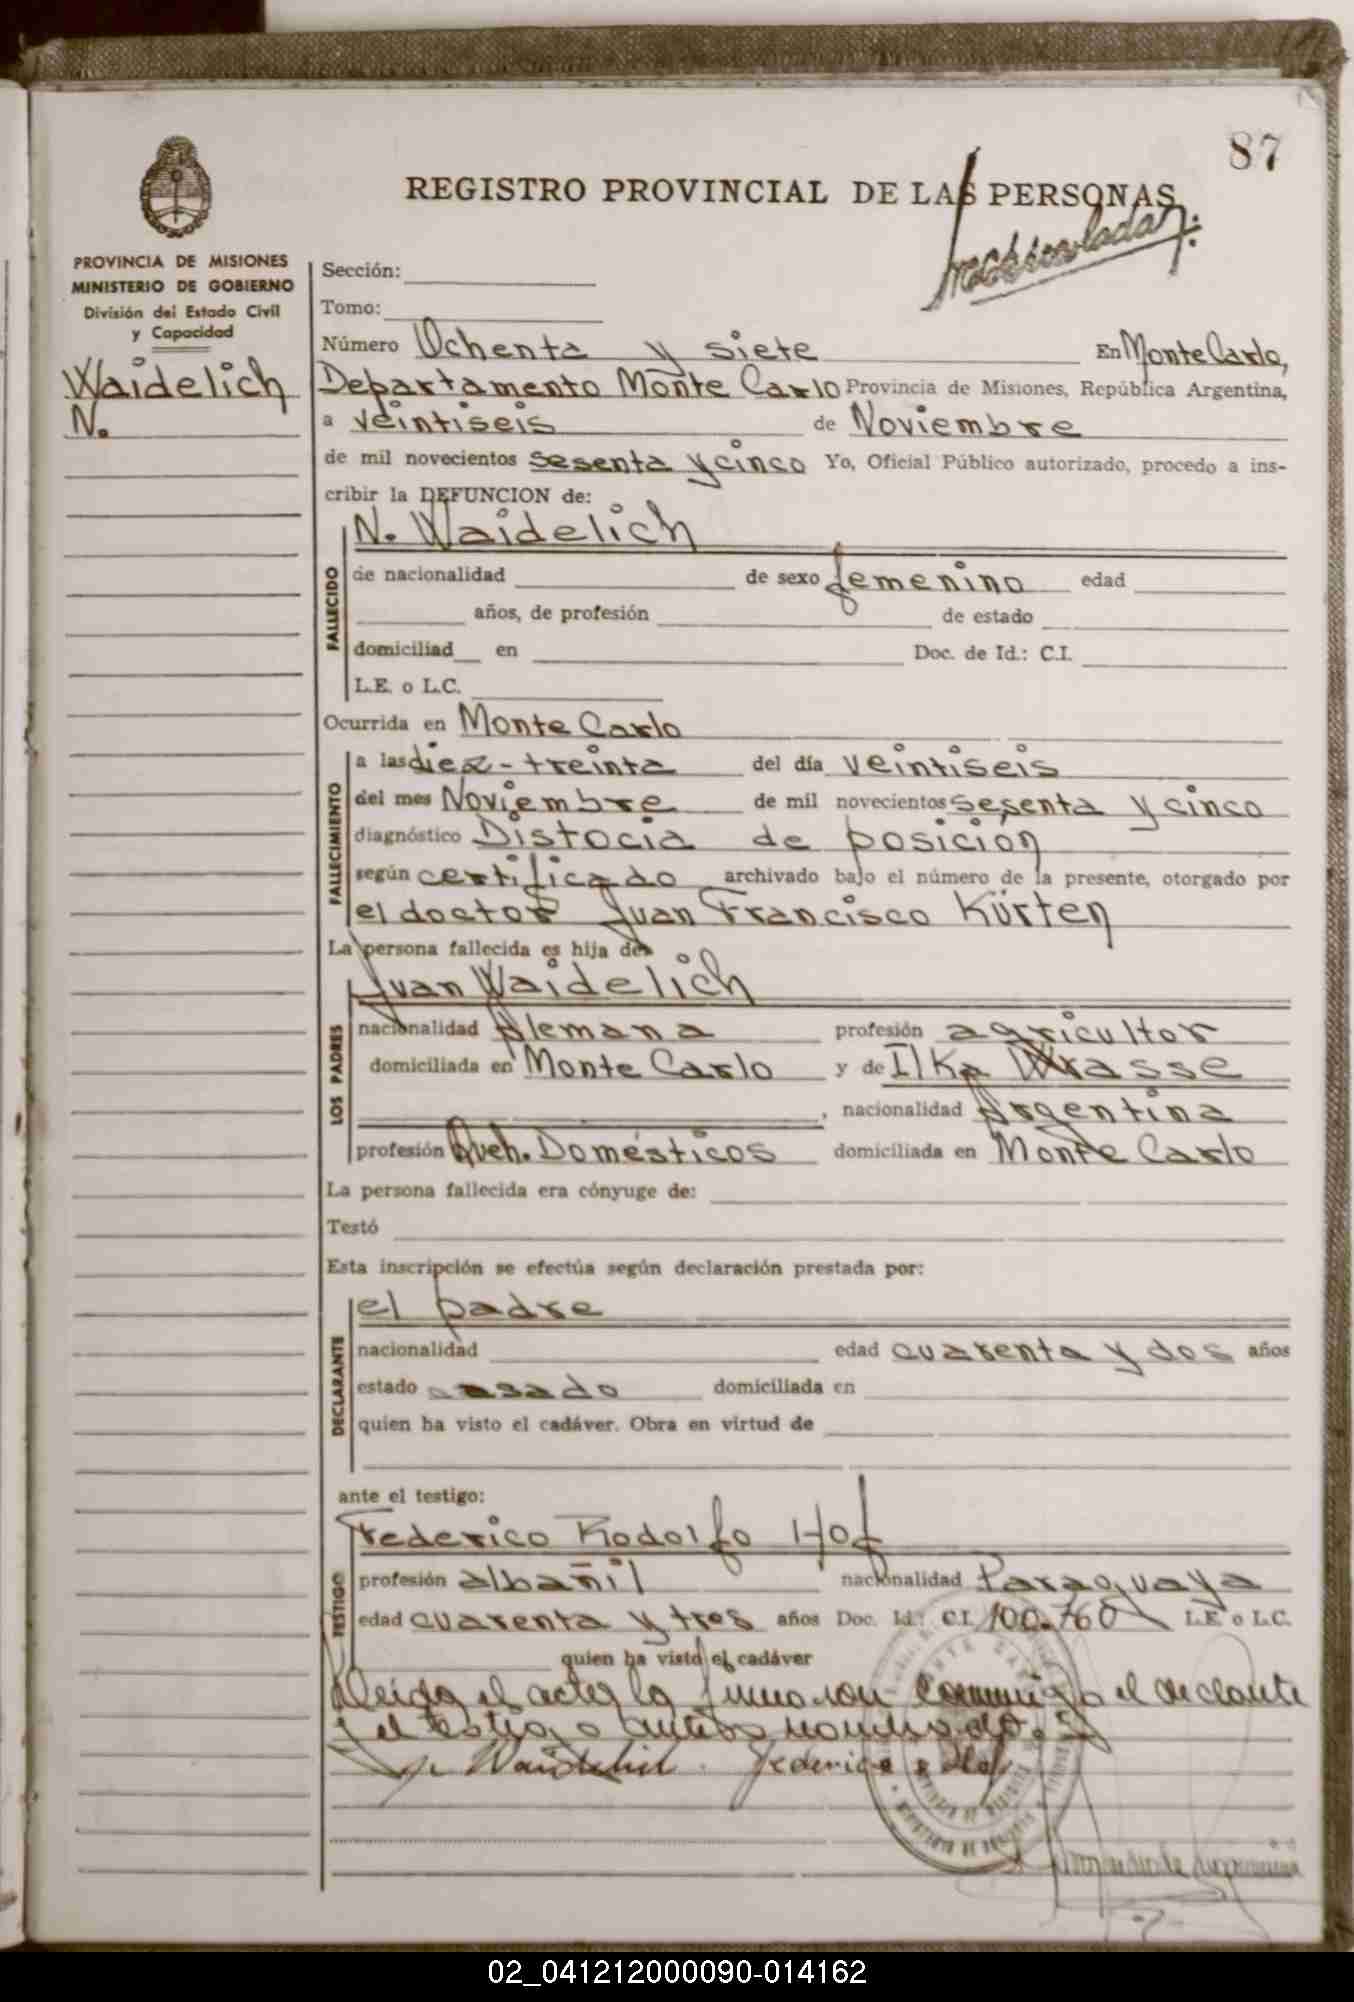 87
REGISTRO PROVINCIAL DE LAS PERSONAS
PROVINCIA DE MISIONES
MINISTERIO DE GOBIERNO
División del Estado Civil
y Capacidad
Waidelich
N.
Sección:
Tomo:
Número Ochenta y siete En Monte Carlo,
Departamento Monte Carlo Provincia de Misiones, República Argentina,
a veintiseis de Noviembre
de mil novecientos sesenta y cinco Yo, Oficial Público autorizado, procedo a ins-
cribir la DEFUNCION de:
N. Waidelich
FALLECIDO
de nacionalidad de sexo femenino edad
años, de profesión de estado
domiciliad en Doc. de Id.: C.I.
L.E. o L.C.
Ocurrida en Monte Carlo
FALLECIMIENTO
a las diez-treinta del día veintiseis
del mes Noviembre de mil novecientos sesenta y cinco
diagnóstico Distocia de posicion
según certificado archivado bajo el número de la presente, otorgado por
el doctor Juan Francisco Kürten
La persona fallecida es hija de
Juan Waidelich
LOS PADRES
nacionalidad Alemana profesión agricultor
domiciliada en Monte Carlo y de Ilka Wrasse
, nacionalidad Argentina
profesión Queh. Domésticos domiciliada en Monte Carlo
La persona fallecida era cónyuge de:
Testó
Esta inscripción se efectúa según declaración prestada por:
el padre
DECLARANTE
nacionalidad edad cuarenta y dos años
estado casado domiciliada en
quien ha visto el cadáver. Obra en virtud de
ante el testigo:
Federico Rodolfo Hof
TESTIGO
profesión albañil nacionalidad Paraguaya
edad cuarenta y tres años Doc. Id.: C.I. 100.760 L.E. o L.C.
quien ha visto el cadáver
Leida el acta la firmaron conmigo el declante
y el testigo antes nombrado.
Waidelich. Federico Hof
02_041212000090-014162